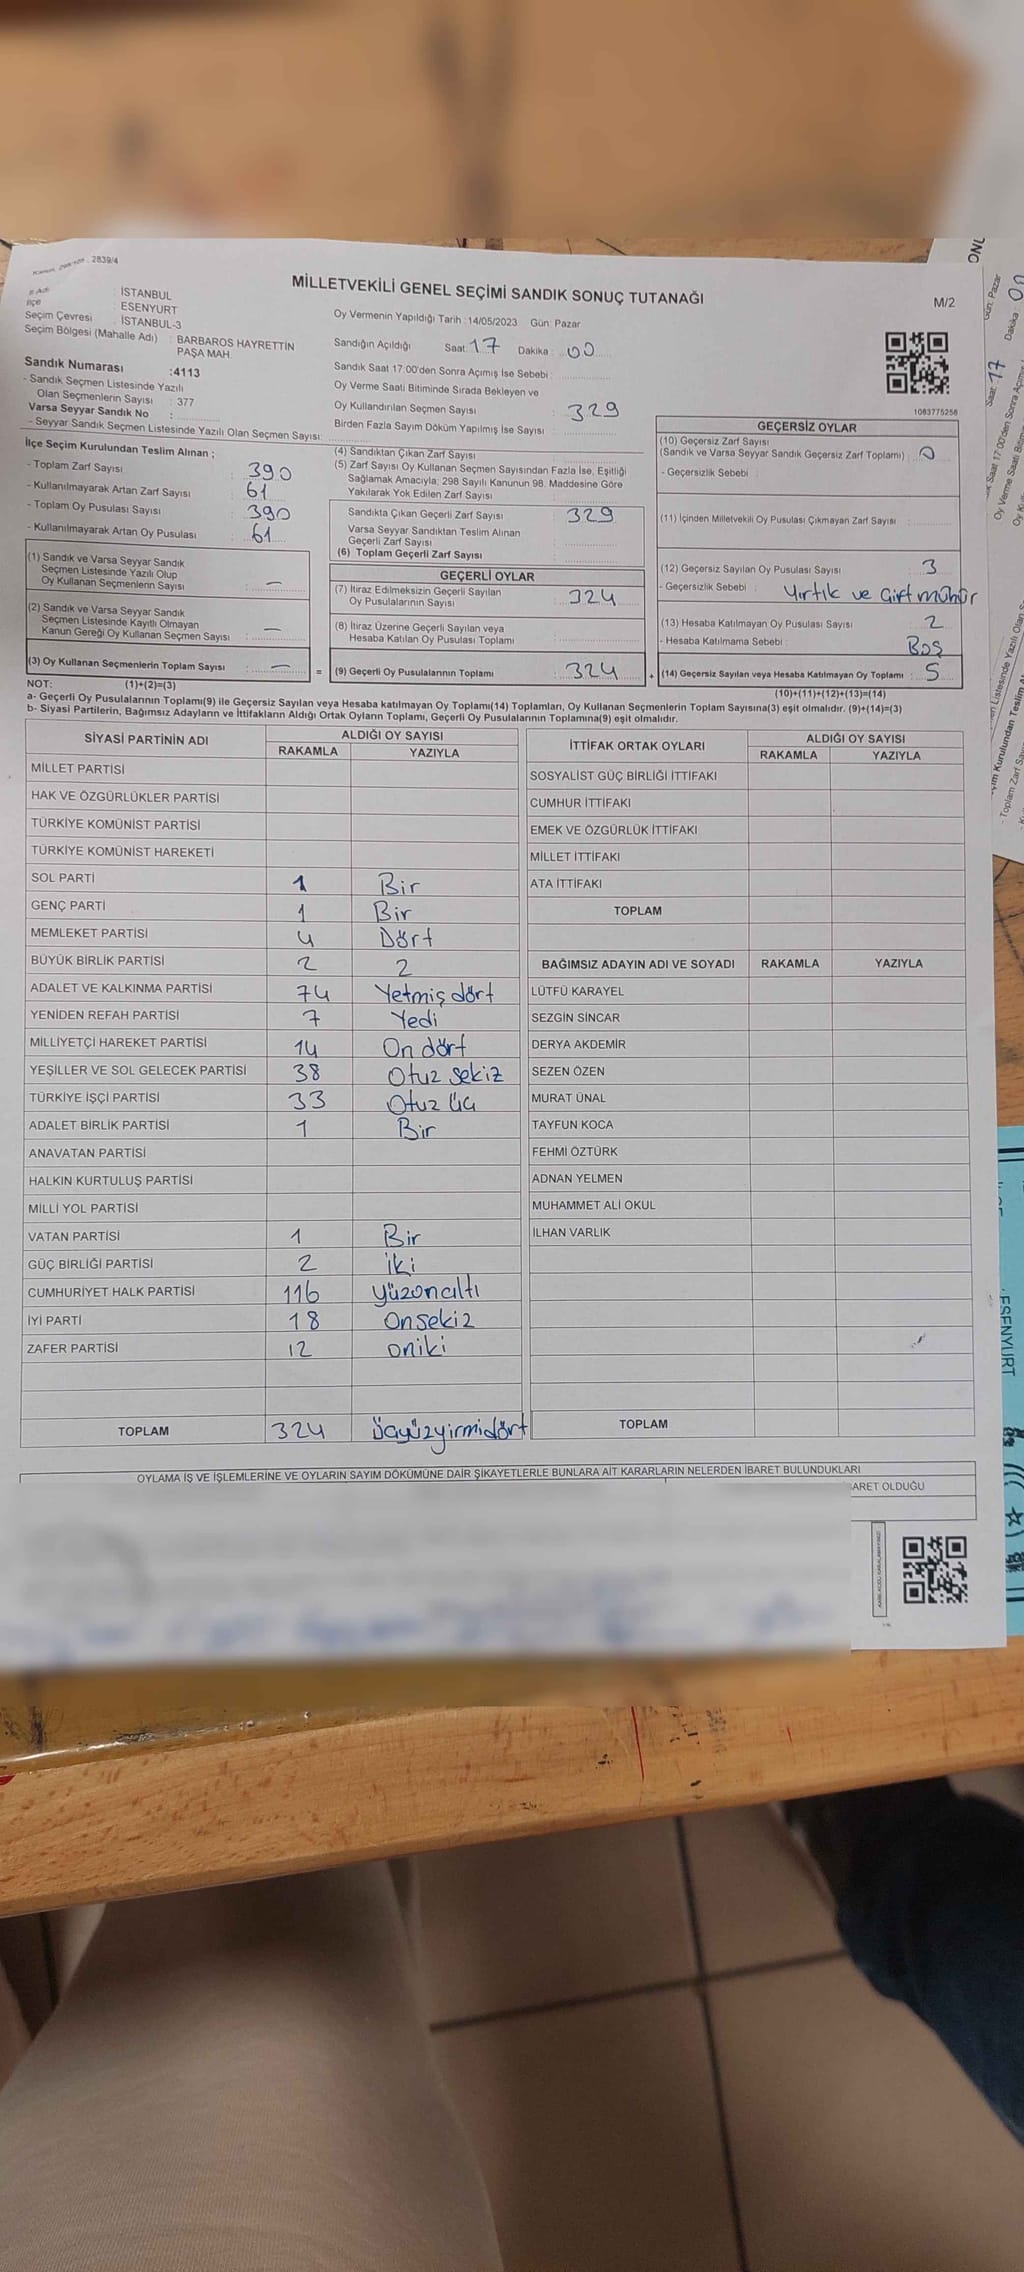 2839/4
MİLLETVEKİLİ GENEL SEÇİMİ SANDIK SONUÇ TUTANAĞI
M/2
İl Adı : İSTANBUL
İlçe : ESENYURT
Seçim Çevresi : İSTANBUL-3
Seçim Bölgesi (Mahalle Adı) : BARBAROS HAYRETTİN
PAŞA MAH.
Sandık Numarası :4113
- Sandık Seçmen Listesinde Yazılı
Olan Seçmenlerin Sayısı : 377
Varsa Seyyar Sandık No :
- Seyyar Sandık Seçmen Listesinde Yazılı Olan Seçmen Sayısı:
Oy Vermenin Yapıldığı Tarih :14/05/2023 Gün: Pazar
Sandığın Açıldığı Saat: 17 Dakika : 00
Sandık Saat 17:00'den Sonra Açımış İse Sebebi :
Oy Verme Saati Bitiminde Sırada Bekleyen ve
Oy Kullandırılan Seçmen Sayısı : 329
Birden Fazla Sayım Döküm Yapılmış İse Sayısı :
1083775256
İlçe Seçim Kurulundan Teslim Alınan ;
- Toplam Zarf Sayısı : 390
- Kullanılmayarak Artan Zarf Sayısı : 61
- Toplam Oy Pusulası Sayısı : 390
- Kullanılmayarak Artan Oy Pusulası : 61
(1) Sandık ve Varsa Seyyar Sandık
Seçmen Listesinde Yazılı Olup
Oy Kullanan Seçmenlerin Sayısı : —
(2) Sandık ve Varsa Seyyar Sandık
Seçmen Listesinde Kayıtlı Olmayan
Kanun Gereği Oy Kullanan Seçmen Sayısı : —
(3) Oy Kullanan Seçmenlerin Toplam Sayısı : — =
(4) Sandıktan Çıkan Zarf Sayısı :
(5) Zarf Sayısı Oy Kullanan Seçmen Sayısından Fazla İse, Eşitliği
Sağlamak Amacıyla; 298 Sayılı Kanunun 98. Maddesine Göre
Yakılarak Yok Edilen Zarf Sayısı :
Sandıkta Çıkan Geçerli Zarf Sayısı : 329
Varsa Seyyar Sandıktan Teslim Alınan
Geçerli Zarf Sayısı :
(6) Toplam Geçerli Zarf Sayısı :
GEÇERLİ OYLAR
(7) İtiraz Edilmeksizin Geçerli Sayılan
Oy Pusulalarının Sayısı : 324
(8) İtiraz Üzerine Geçerli Sayılan veya
Hesaba Katılan Oy Pusulası Toplamı :
(9) Geçerli Oy Pusulalarının Toplamı : 324 +
GEÇERSİZ OYLAR
(10) Geçersiz Zarf Sayısı
(Sandık ve Varsa Seyyar Sandık Geçersiz Zarf Toplamı) : 0
- Geçersizlik Sebebi :
(11) İçinden Milletvekili Oy Pusulası Çıkmayan Zarf Sayısı :
(12) Geçersiz Sayılan Oy Pusulası Sayısı : 3
- Geçersizlik Sebebi : Yırtık ve Çift mühür
(13) Hesaba Katılmayan Oy Pusulası Sayısı : 2
- Hesaba Katılmama Sebebi : Boş
(14) Geçersiz Sayılan veya Hesaba Katılmayan Oy Toplamı : 5
NOT: (1)+(2)=(3)
(10)+(11)+(12)+(13)=(14)
a- Geçerli Oy Pusulalarının Toplamı(9) ile Geçersiz Sayılan veya Hesaba katılmayan Oy Toplamı(14) Toplamları, Oy Kullanan Seçmenlerin Toplam Sayısına(3) eşit olmalıdır. (9)+(14)=(3)
b- Siyasi Partilerin, Bağımsız Adayların ve İttifakların Aldığı Ortak Oyların Toplamı, Geçerli Oy Pusulalarının Toplamına(9) eşit olmalıdır.
SİYASİ PARTİNİN ADI ALDIĞI OY SAYISI
RAKAMLA YAZIYLA
MİLLET PARTİSİ
HAK VE ÖZGÜRLÜKLER PARTİSİ
TÜRKİYE KOMÜNİST PARTİSİ
TÜRKİYE KOMÜNİST HAREKETİ
SOL PARTİ 1 Bir
GENÇ PARTİ 1 Bir
MEMLEKET PARTİSİ 4 Dört
BÜYÜK BİRLİK PARTİSİ 2 2
ADALET VE KALKINMA PARTİSİ 74 Yetmiş dört
YENİDEN REFAH PARTİSİ 7 Yedi
MİLLİYETÇİ HAREKET PARTİSİ 14 On dört
YEŞİLLER VE SOL GELECEK PARTİSİ 38 Otuz sekiz
TÜRKİYE İŞÇİ PARTİSİ 33 Otuz üç
ADALET BİRLİK PARTİSİ 1 Bir
ANAVATAN PARTİSİ
HALKIN KURTULUŞ PARTİSİ
MİLLİ YOL PARTİSİ
VATAN PARTİSİ 1 Bir
GÜÇ BİRLİĞİ PARTİSİ 2 iki
CUMHURİYET HALK PARTİSİ 116 yüzonaltı
İYİ PARTİ 18 Onsekiz
ZAFER PARTİSİ 12 oniki
TOPLAM 324 üçyüzyirmidört
İTTİFAK ORTAK OYLARI ALDIĞI OY SAYISI
RAKAMLA YAZIYLA
SOSYALİST GÜÇ BİRLİĞİ İTTİFAKI
CUMHUR İTTİFAKI
EMEK VE ÖZGÜRLÜK İTTİFAKI
MİLLET İTTİFAKI
ATA İTTİFAKI
TOPLAM
BAĞIMSIZ ADAYIN ADI VE SOYADI RAKAMLA YAZIYLA
LÜTFÜ KARAYEL
SEZGİN SİNCAR
DERYA AKDEMİR
SEZEN ÖZEN
MURAT ÜNAL
TAYFUN KOCA
FEHMİ ÖZTÜRK
ADNAN YELMEN
MUHAMMET ALİ OKUL
İLHAN VARLIK
TOPLAM
OYLAMA İŞ VE İŞLEMLERİNE VE OYLARIN SAYIM DÖKÜMÜNE DAİR ŞİKAYETLERLE BUNLARA AİT KARARLARIN NELERDEN İBARET BULUNDUKLARI
BARET OLDUĞU
Gün: Pazar
Saat: 17 Dakika : 00
Saat 17:00'den Sonra Açımış
Oy Verme Saati Bitiminde
ESENYURT